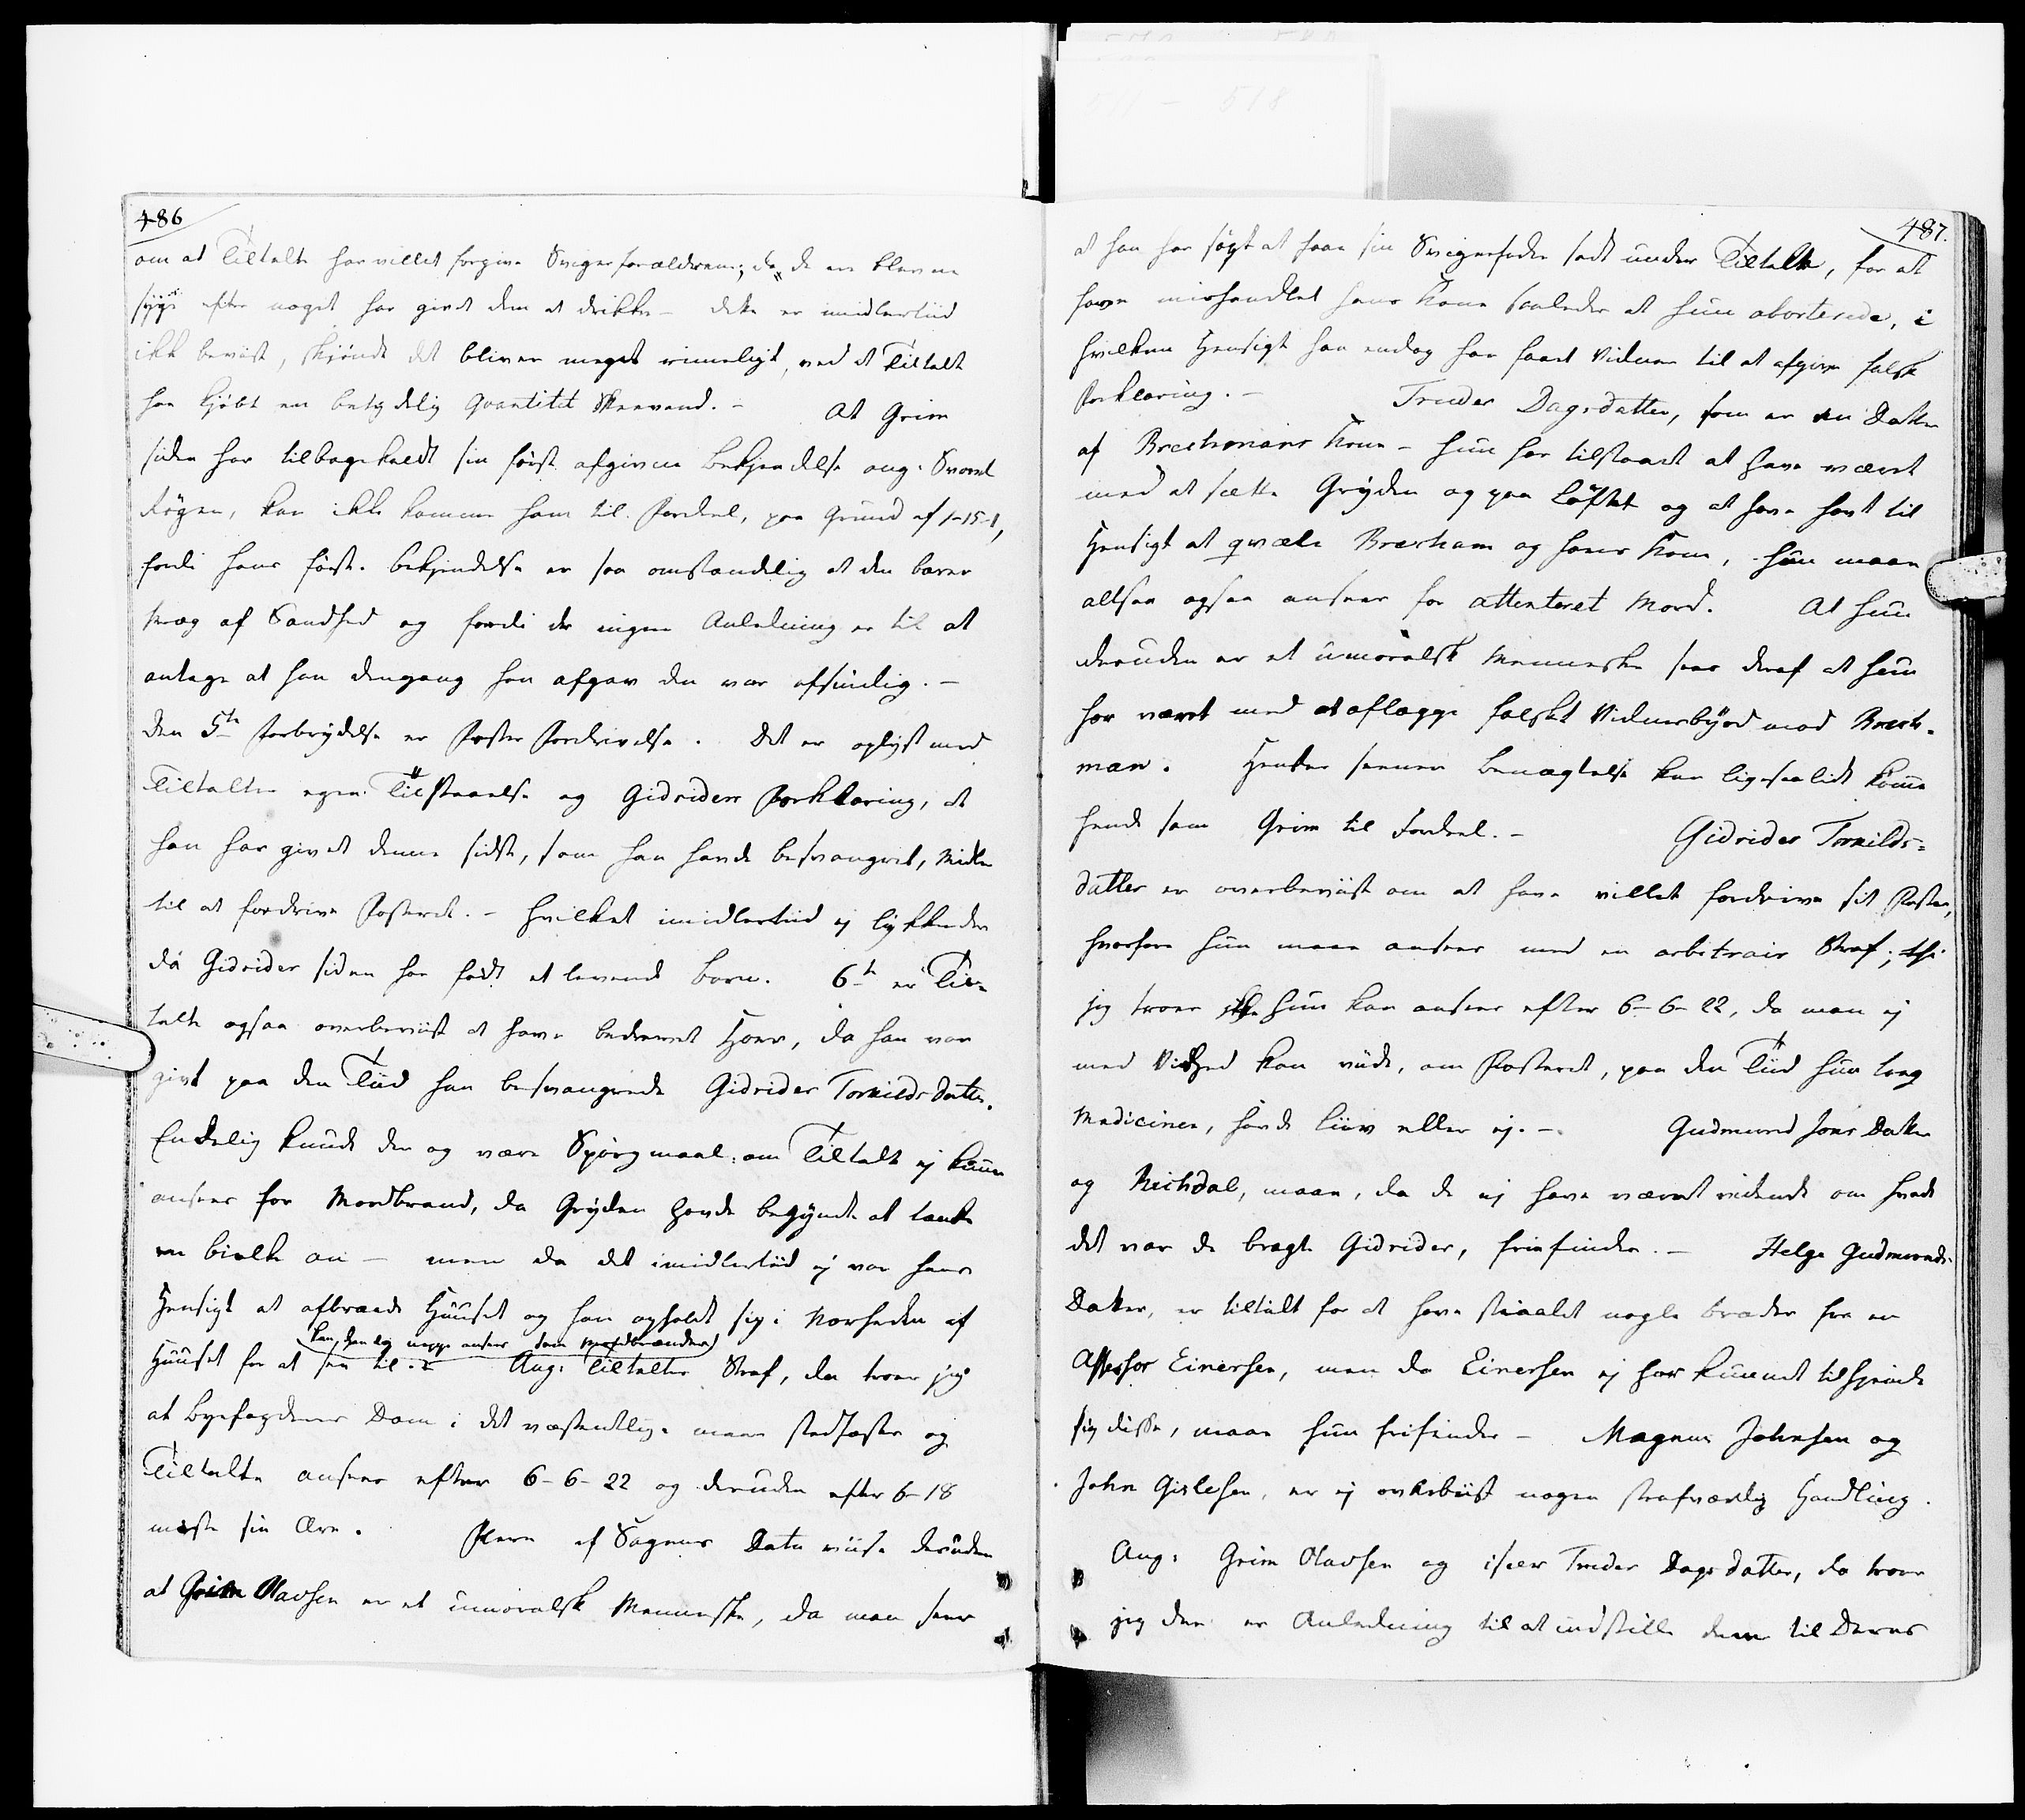 486
om at Tiltalte har villet forgive Svigerforældrene; da de ere blevne
syge efter noget har givet dem at drikke – dette er imidlertiid
ikke beviist, skjøndt det bliver meget rimeligt, ved at Tiltalte
har kjøbt en betydelig Qvantitet Skeevand. – At Grim
siden har tilbagekaldt sin først afgivne Bekjendelse ang: Svovel
Røgen, kan ikke komme ham til Fordeel, paa Grund af 1-15-1,
fordi hans første Bekjendelse er saa omstændelig at den bærer
Præg af Sandhed og fordi der ingen Anledning er til at
antage at han dengang han afgav den var afsindig. –
Den 5te Forbrydelse er Foster Fordrivelse. Det er oplyst med
Tiltaltes egen Tilstaaelse og Gidriders Forklaring, at
han har givet denne sidste, som han havde besvangret, Midler
til at fordrive Fosteret. – hvilket imidlertiid ej lykkedes
da Gidrider siden har født et levende Barn. 6te er Til=
talte ogsaa overbeviist at have bedrevet Hoer, da han var
givt paa den Tiid han besvangrede Gidrider Torkilds Datter.
Endelig kunde der og være Spørgmaal om Tiltalte ej kunne
ansees for Mordbrand, da Gryden havde begyndt at tænde
en bielke an – men da det imidlertiid ej var hans
Hensigt at afbrænde Huuset og han opholdt sig i Nærheden af
kan han ej neppe ansees som Mordbrænder
Huuset for at see til. – Ang: Tiltaltes Straf, da troer jeg
at Byefogdens Dom i det væsentlige maae stadfæstes og
Tiltalte ansees efter 6-6-22 og desuden efter 6-18
miste sin Ære. Flere af Sagens Data viise desuden
at Grim Olavsen er et umoralsk Menneske, da man seer
487.
at han har søgt at faae sin Svigerfader sadt under Tiltale, for at
have mishandlet hans Kone saaledes at hun aborterede, i
hvilken Hensigt han endog har faaet Vidner til at afgive falsk
Forklaring. – Truder Dagsdatter, som er en Datter
af Brechmans Kone – hun har tilstaaet at have været
med at sætte Gryden op paa Loftet og at have havt til
Hensigt at qvæle Brechman og hans Kone, hun maae
altsaa ogsaa ansees for attenteret Mord. At hun
desuden er et umoralsk Menneske sees deraf at hun
har været med at aflægge falskt Vidnesbyrd mod Brech-
man. Hendes senere Benægtelse kan ligesaalidt komme
hende som Grim til Fordeel. – Gidrider Torkilds=
datter er overbeviist om at have villet fordrive sit Foster,
hvorfore hun maae ansees med en arbitrair Straf; thi
jeg troer ikke hun kan ansees efter 6-6-22, da man ej
med Vished kan viide, om Fosteret, paa den Tiid hun tog
Medicinen, havde Liiv eller ej. – Gudmund Jons Datter
og Richdal, maae, da de ej have været vidende om hvad
det var de bragte Gidrider, friefindes. – Helge Gudmunds-
Datter, er tiltalt for at have stiaalet nogle brader fra en
Assessor Einersen, men da Einersen ej har kunnet tilhjemle
sig disse, maae hun frifindes – Magnus Johnsen og
John Gislesen, er ej overbeviist nogen strafværdig Handling.
Ang: Grim Olavsen og især Truder Dagsdatter, da troer
jeg der er Anledning til at indstille dem til Deres